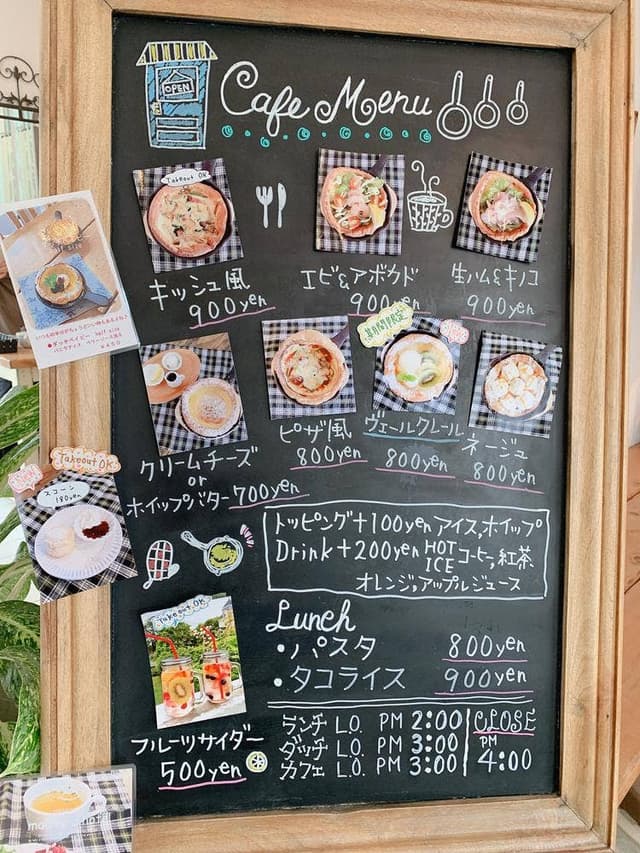 OPEN
Cafe Menu
Takeout OK
キッシュ風
900yen
エビ&アボカド
900yen
生ハム&キノコ
900yen
期間限定
クリームチーズ
or
ホイップバター 700yen
ピザ風
800yen
ヴェールクレール
800yen
ネージュ
800yen
Takeout OK
スコーン
180yen
トッピング+100yen アイス,ホイップ
Drink+200yen HOT ICE コーヒー,紅茶
オレンジ,アップルジュース
Takeout OK
フルーツサイダー
500yen
Lunch
・パスタ 800yen
・タコライス 900yen
ランチ L.O. PM 2:00
ダッチ L.O. PM 3:00
カフェ L.O. PM 3:00
CLOSE
PM
4:00